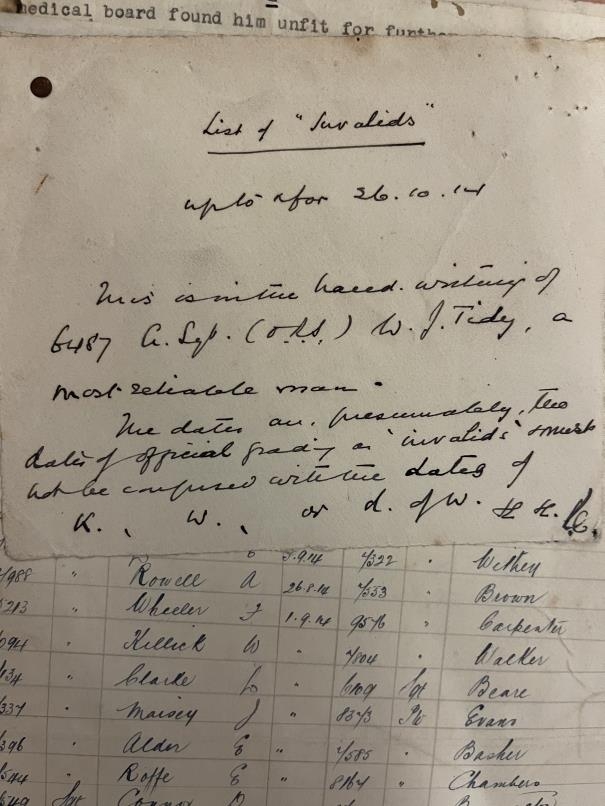 medical board found him unfit for further
List of "Invalids"
up to & for 26.10.14
This is in the hand-writing of
6487 A. Sgt. (O.R.S.) W. J. Tidy, a
most reliable man.
The dates are, presumably, the
dates of official grading as 'invalids' & must
not be confused with the dates of
K., W., or d. of W. H. H.
3.9.14 7322 " Withey
1988 " Rowell A 26.8.14 7353 " Brown
5213 " Wheeler F 1.9.14 9576 " Carpenter
094 " Killick W " 7804 " Walker
134 " Clarke L " 6109 Sgt Beare
337 " Maisey J " 8373 Pte Evans
396 " Alder E " 7585 " Basher
544 " Roffe E " 8164 " Chambers
549 Sgt Connor